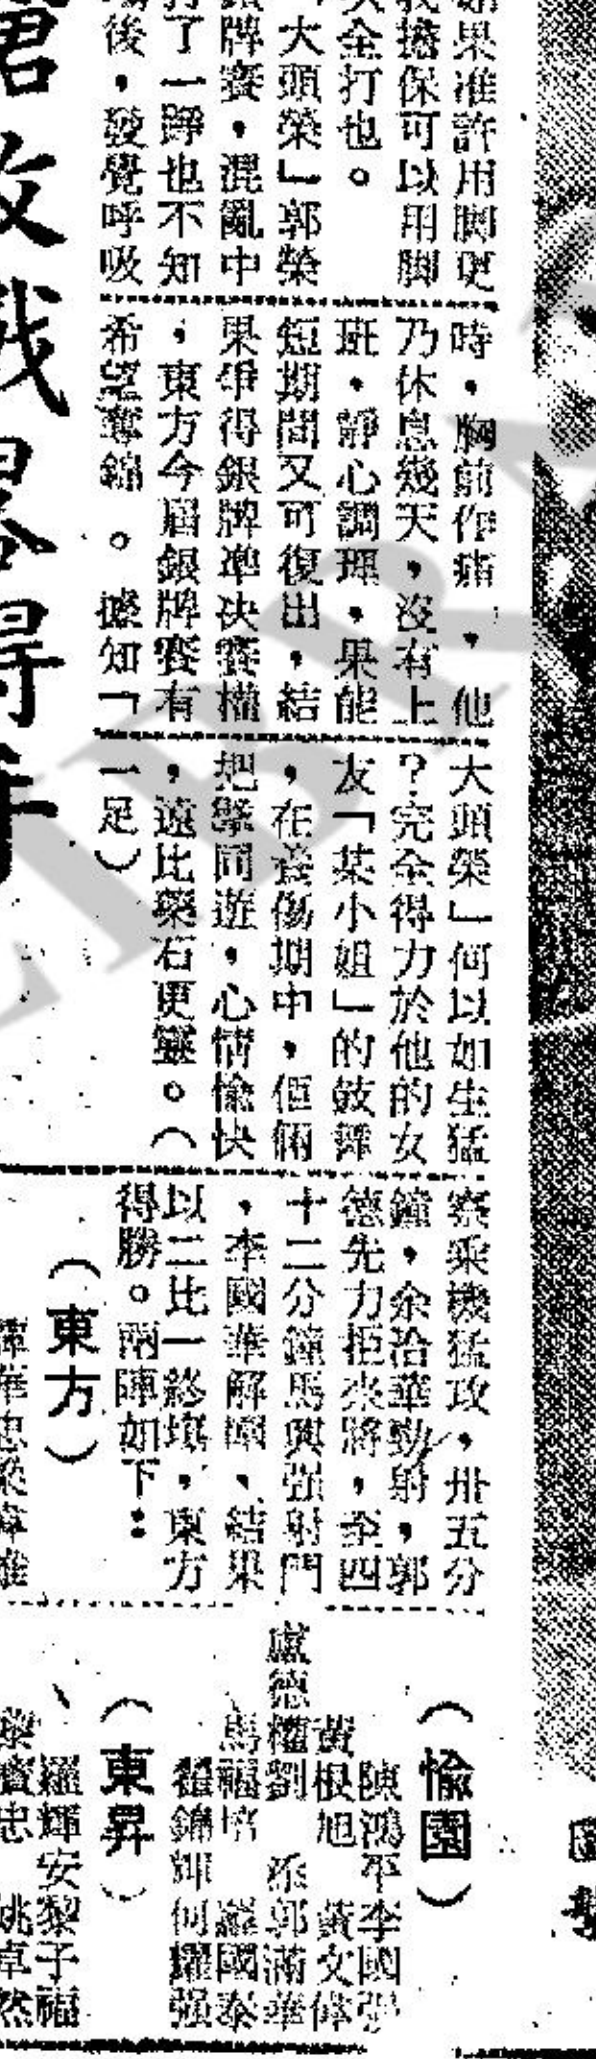 如果准許用脚更
我擔保可以用脚
大金打也。
「大頭榮」郭榮
銀牌賽,混亂中
打了一踭也不知
後,發覺呼吸
時,胸前作痛,他
乃休息幾天,沒有上
班,靜心調理,果能
短期間又可復出,結
果爭得銀牌準决賽權
,東方今屆銀牌賽有
希望奪錦。據知「
大頭榮」何以如生猛
?完全得力於他的女
友「某小姐」的鼓舞
,在養傷期中,佢倆
把擎同遊,心情愉快
,遠比藥石更靈。(
一足)
察乘機猛攻,卅五分
鐘,余洽華勁射,郭
德先力拒來將,至四
十二分鐘馬興强射門
,李國華解圍、結果
以二比一終塲,東方
得勝。兩陣如下:
(東方)
(愉園)
陳鴻平李國強
黃根旭 黃文偉
盧德權劉 添郭滿華
馬福培 羅國泰
翟錦輝何耀强
(東昇)
羅輝安黎子福
黎寶忠 姚卓然